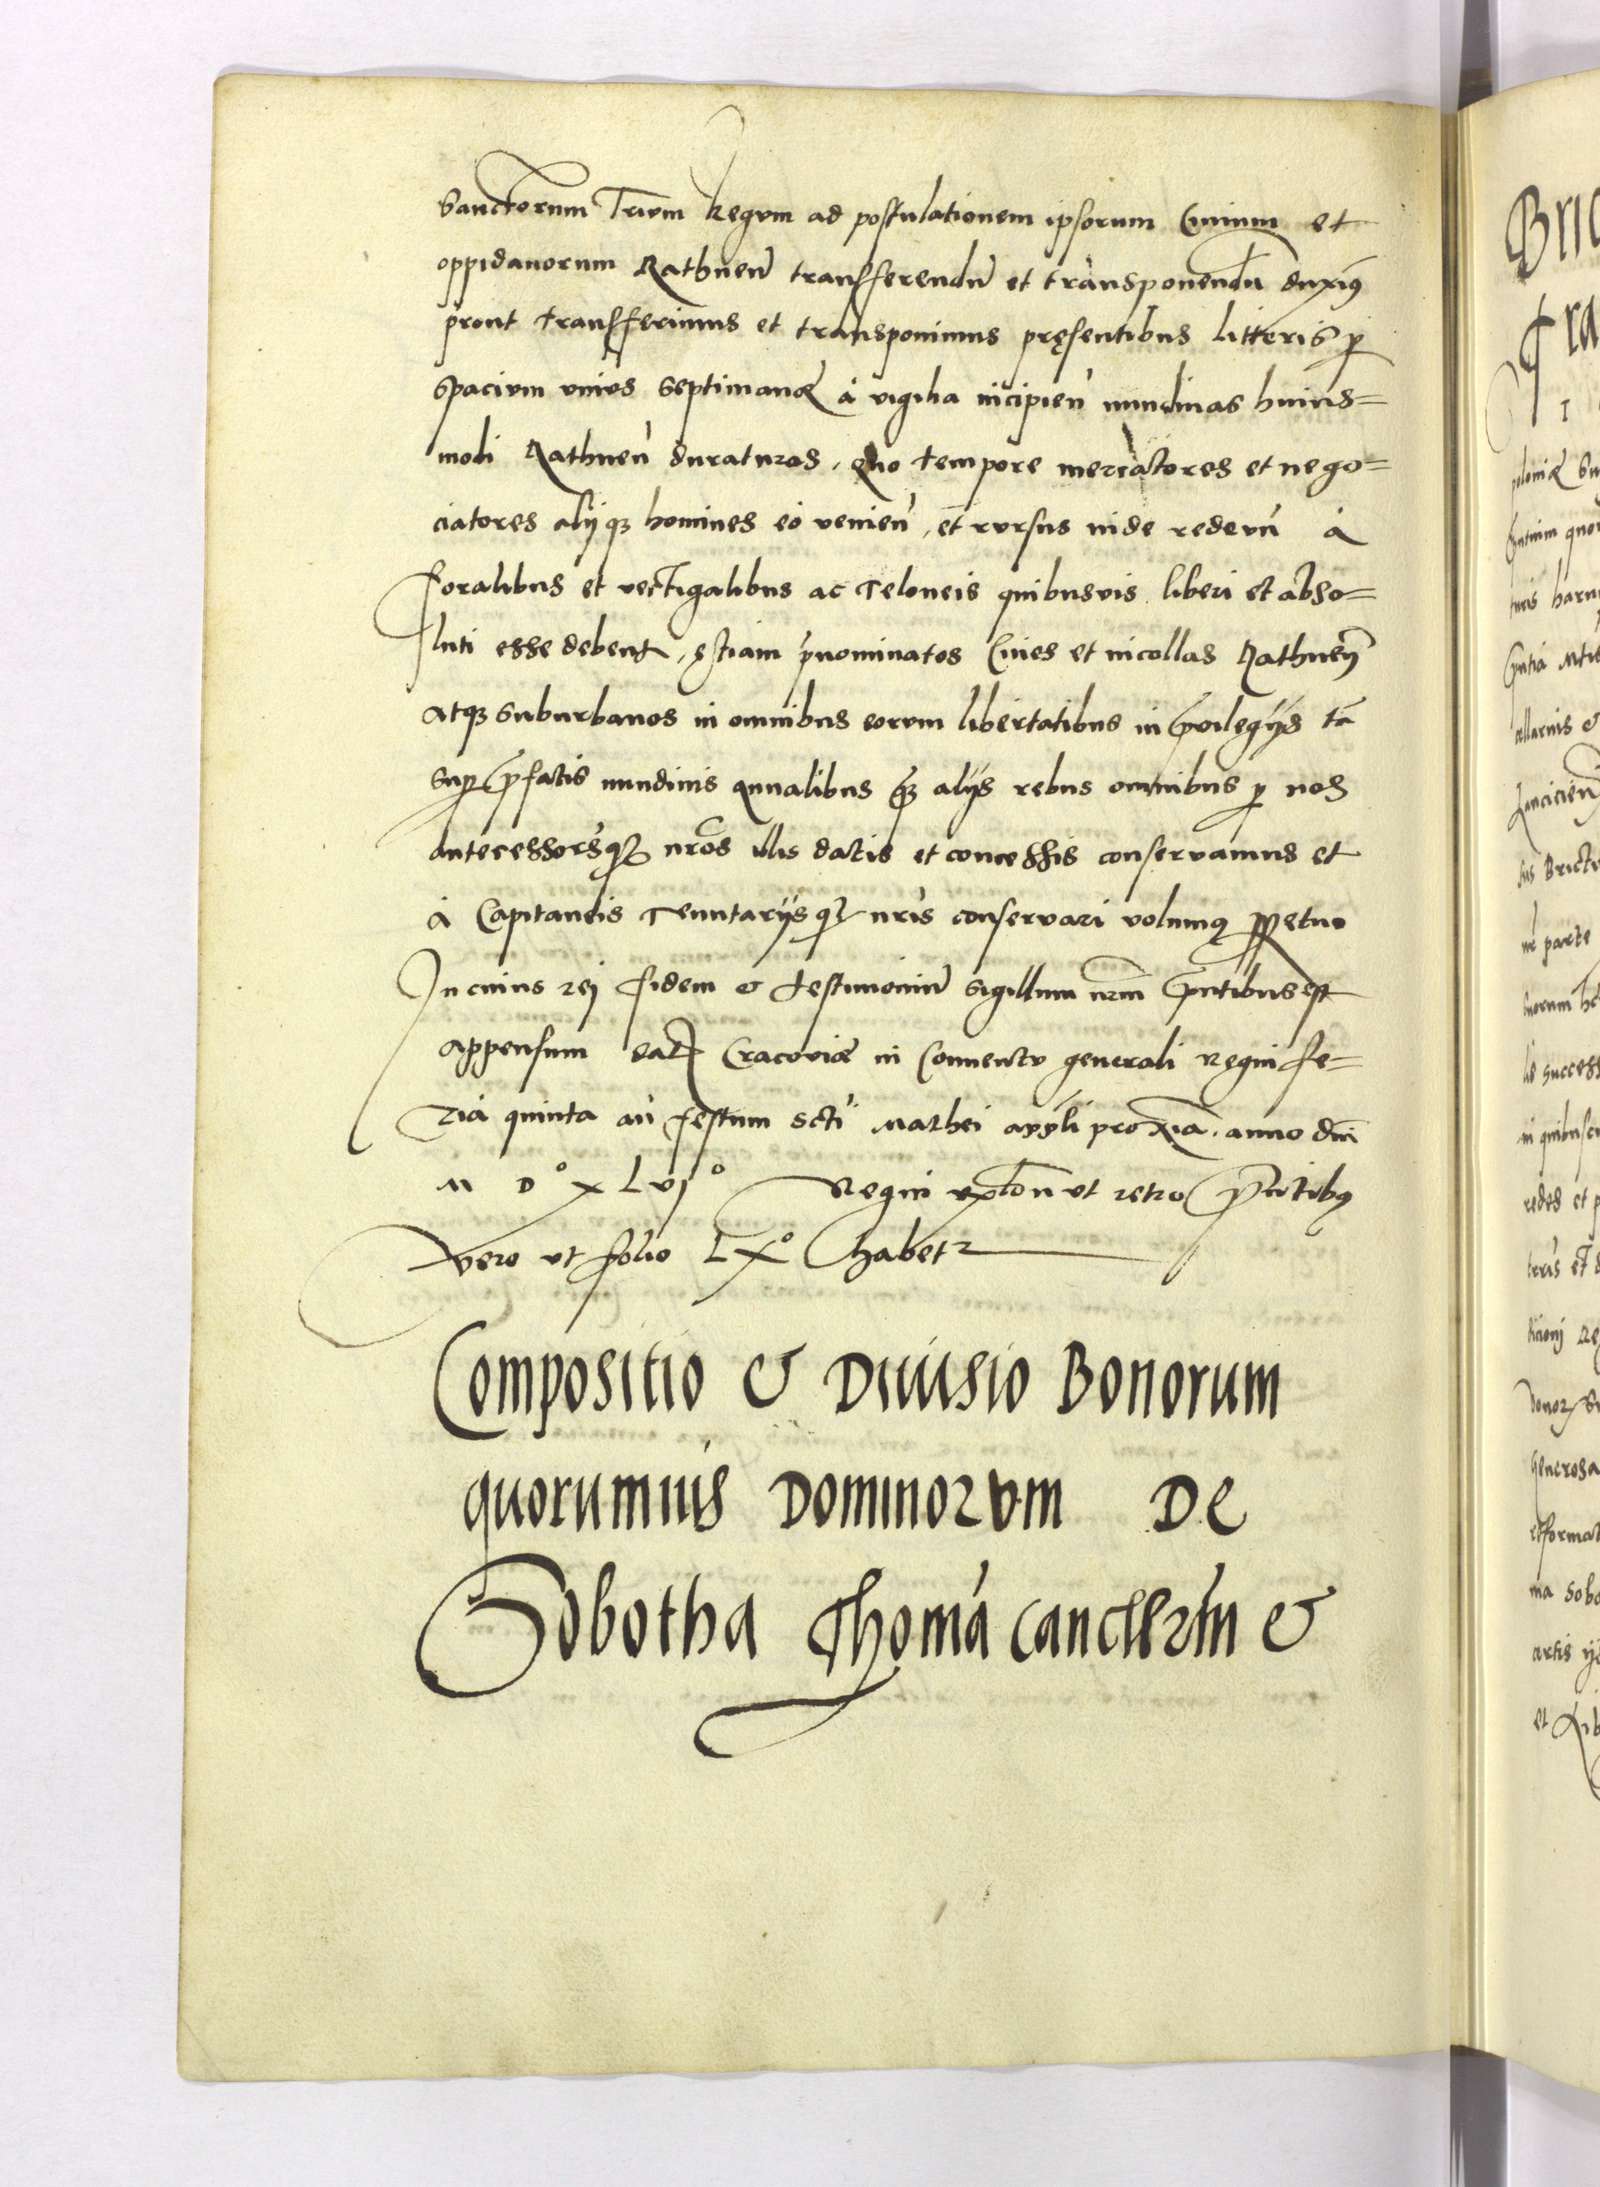 Sanctorum Trium Regum ad postulationem ipsorum Civium et
oppidanorum Rathnen̄ transferendū et transponendū duxim9
prout transferimus et transponimus pręsentibus litteris p
Spacium unius septimanæ à vigilia incipien̄ nundinas huius=
modi Rathnen̄ duraturas, quo tempore mercatores et nego=
ciatores alijq3 homines eò venien̄, et rursus inde redeun̄ à
foralibus et vectigalibus ac Teloneis quibusvis liberi et abso=
luti esse debent, etiam p̄nominatos Cives et incollas Rathnen̄
atq3 suburbanos in omnibus eorum libertatibus in p̄vilegijs tā
sup p̄fatis nundinis annualibus q̄3 alijs rebus omnibus p nos
antecessorsq3 nr̄os illis datis et concessis conservamus et
à Capitaneis Tenutarijsq3 nr̄is conservari volum9 ppetuo
In cuius rej fidem & testimoniū sigillum nr̄m p̄ntibus est
appensum Dat Cracoviæ in Conventu generali Regni fe=
ria quinta an̄ festum scti Mathei apl̄i proxīa. anno dn̄i
M D° X L VJ° Regni vō ton ut retro P̄ntib9
vero ut folio L X° habetr
Compositio & Diuisio Bonorum
quorumuis Dominorum De
Sobotha Thomā Cancllr̄m &
Bric
Tra
I
poloniæ
quor
turis harum
Lancicien̄
sus Brictu
parte
suorum
success
in quibusc
redes et p
Generosa
ma Sobo
artis
et Lib